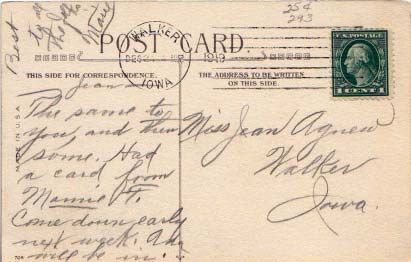 25¢
243
Best
to all
the folks
POST CARD.
WALKER
DEC 2
1913
IOWA
THIS SIDE FOR CORRESPONDENCE.
THE ADDRESS TO BE WRITTEN
ON THIS SIDE.
U.S. POSTAGE
1 CENT 1
MADE IN U.S.A.
Jean
The same to
you, and then
some. Had
a card from
Mamie T.
Come down early
next week. Ada
will be in.
Miss Jean Agnew
Walker
Iowa.